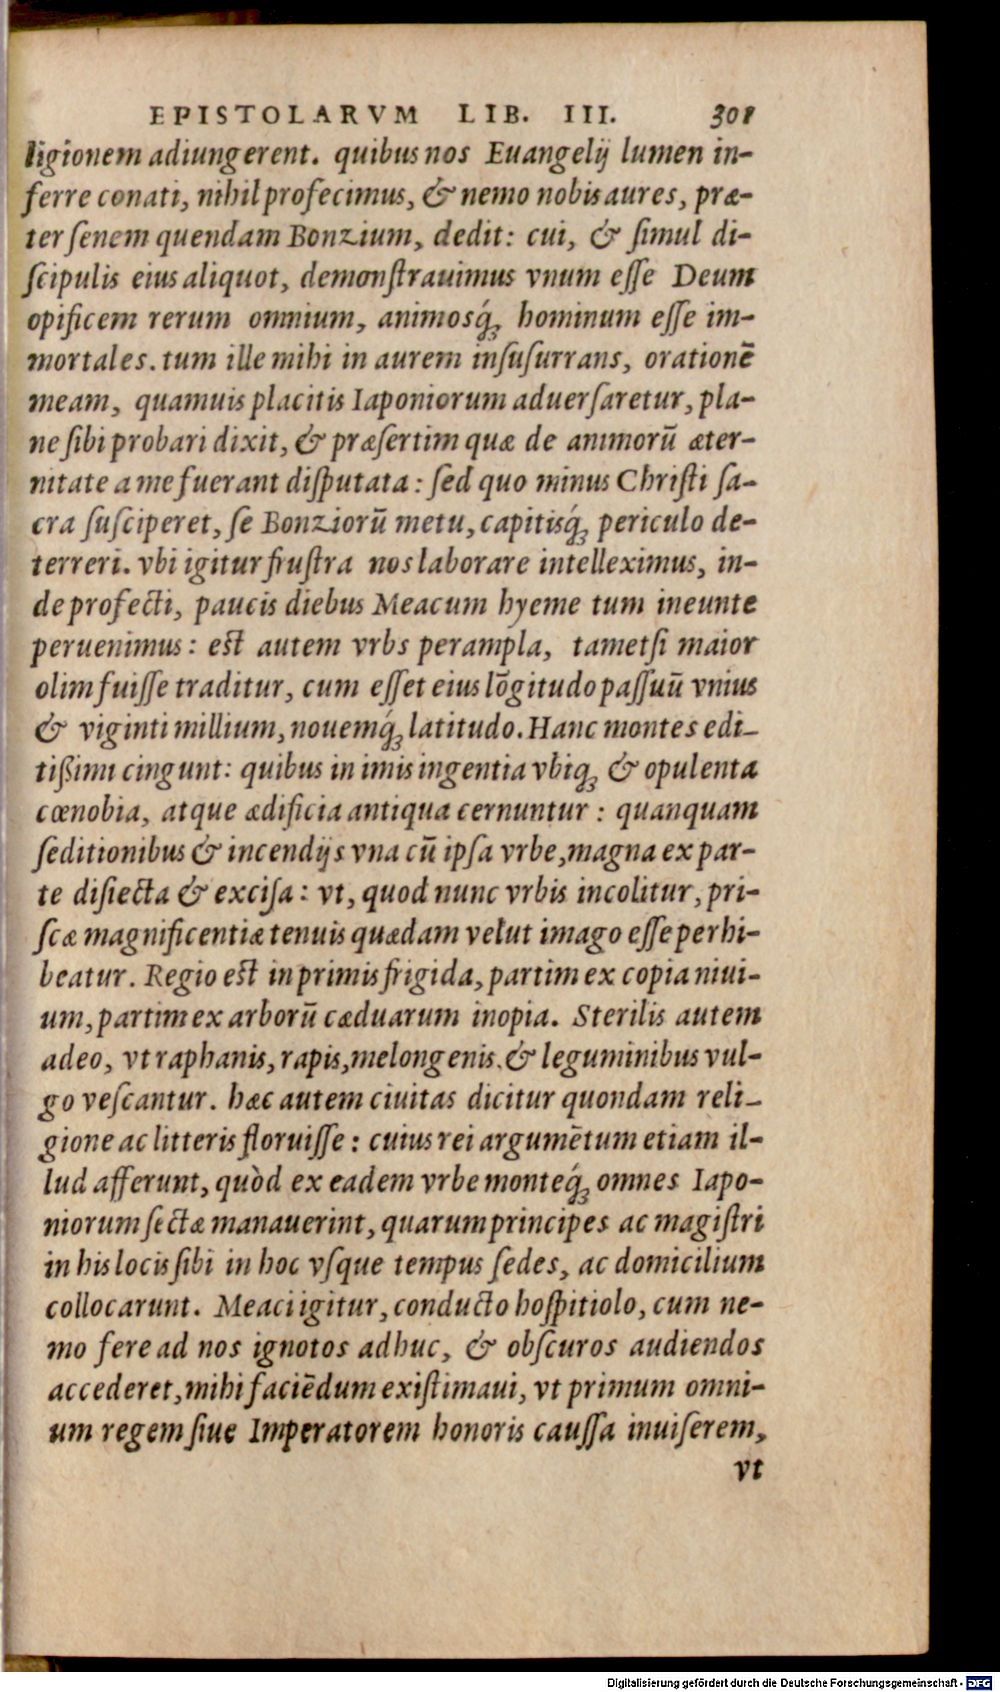 EPISTOLARVM LIB. III. 301
ligionem adiungerent. quibus nos Euangelij lumen in-
ferre conati, nihil profecimus, & nemo nobis aures, præ-
ter ſenem quendam Bonzium, dedit: cui, & ſimul di-
ſcipulis eius aliquot, demonſtrauimus vnum eſſe Deum
opificem rerum omnium, animosq́ꝫ hominum eſſe im-
mortales. tum ille mihi in aurem inſuſurrans, orationē
meam, quamuis placitis Iaponiorum aduerſaretur, pla-
ne ſibi probari dixit, & præſertim quæ de animorū æter-
nitate a me fuerant diſputata: ſed quo minus Chriſti ſa-
cra ſuſciperet, ſe Bonziorū metu, capitisq́ꝫ periculo de-
terreri. vbi igitur fruſtra nos laborare intelleximus, in-
de profecti, paucis diebus Meacum hyeme tum ineunte
peruenimus: eſt autem vrbs perampla, tametſi maior
olim fuiſſe traditur, cum eſſet eius lōgitudo paſſuū vnius
& viginti millium, nouemq́ꝫ latitudo. Hanc montes edi-
tißimi cingunt: quibus in imis ingentia vbiqꝫ & opulenta
cœnobia, atque ædificia antiqua cernuntur: quanquam
ſeditionibus & incendijs vna cū ipſa vrbe, magna ex par-
te diſiecta & exciſa: vt, quod nunc vrbis incolitur, pri-
ſcæ magnificentiæ tenuis quædam velut imago eſſe perhi-
beatur. Regio eſt in primis frigida, partim ex copia niui-
um, partim ex arborū cæduarum inopia. Sterilis autem
adeo, vt raphanis, rapis, melongenis, & leguminibus vul-
go veſcantur. hæc autem ciuitas dicitur quondam reli-
gione ac litteris floruiſſe: cuius rei argumētum etiam il-
lud afferunt, quòd ex eadem vrbe monteq́ꝫ omnes Iapo-
niorum ſectæ manauerint, quarum principes ac magiſtri
in his locis ſibi in hoc vſque tempus ſedes, ac domicilium
collocarunt. Meaci igitur, conducto hoſpitiolo, cum ne-
mo fere ad nos ignotos adhuc, & obſcuros audiendos
accederet, mihi faciēdum exiſtimaui, vt primum omni-
um regem ſiue Imperatorem honoris cauſſa inuiſerem,
vt
Digitalisierung gefördert durch die Deutsche Forschungsgemeinschaft - DFG